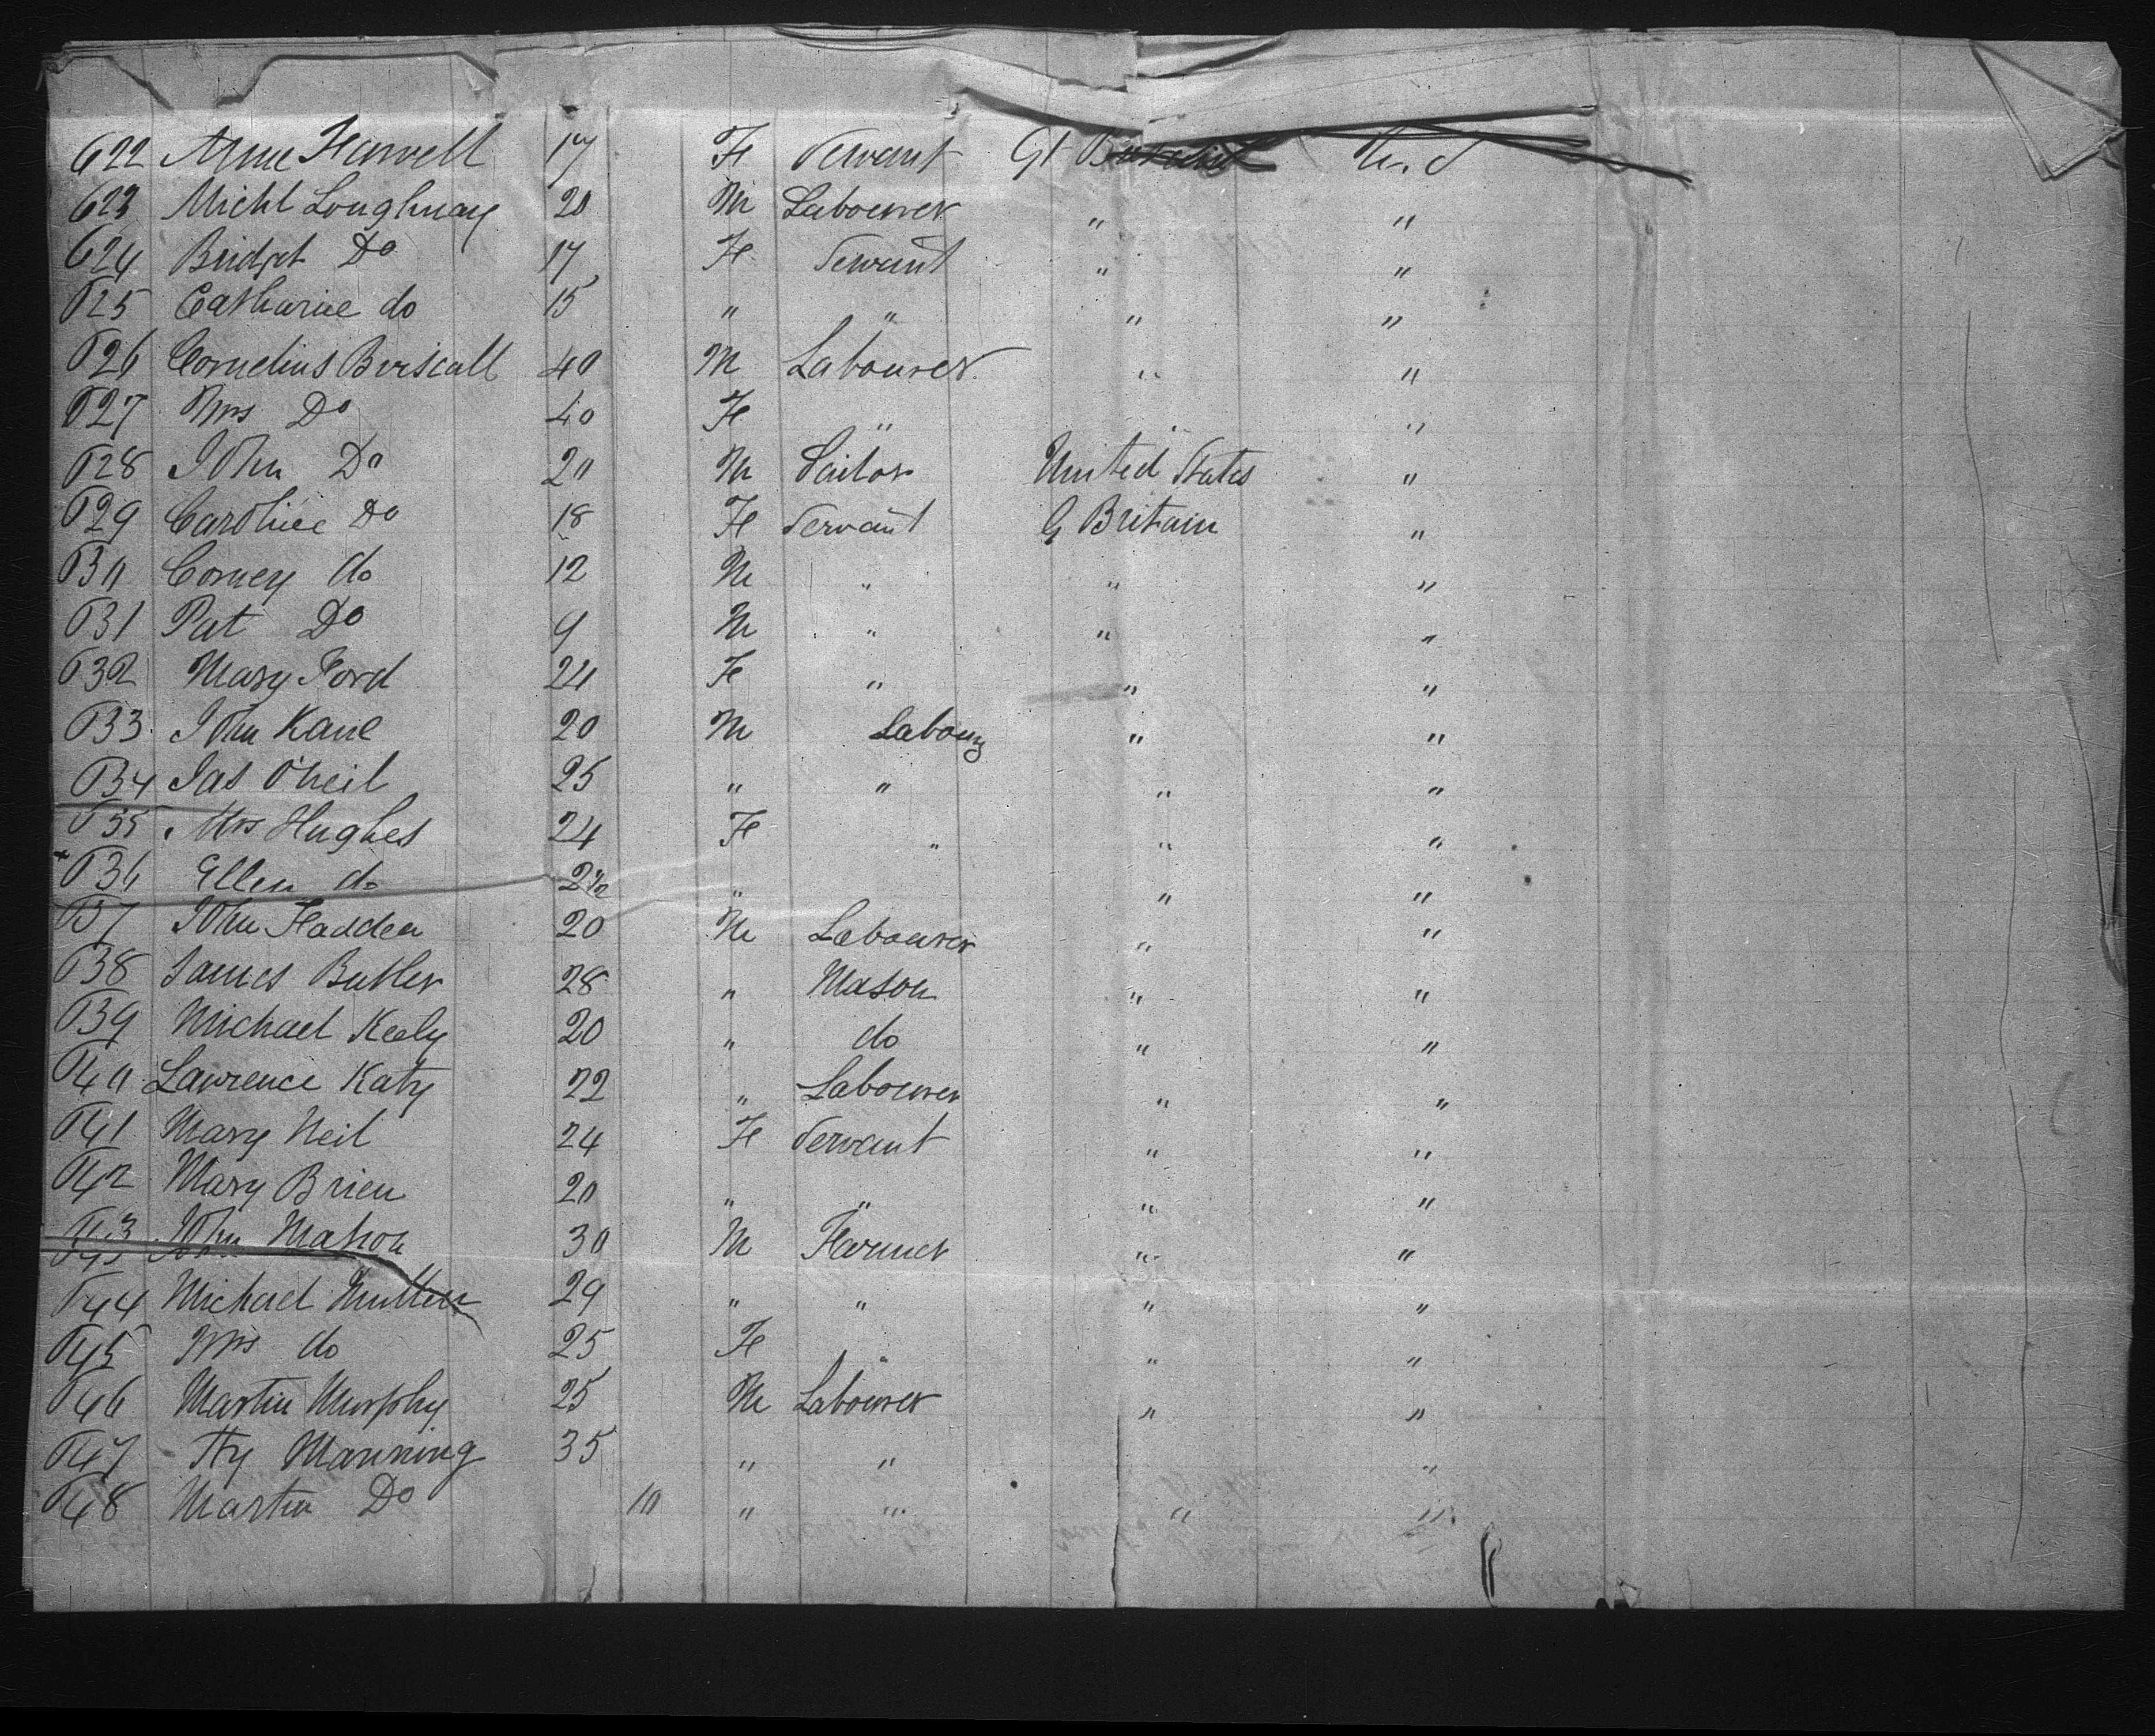 622 Anne Farrell 17 F Servant Gt Britain U.S
623 Michl Loughnay 20 M Labourer " "
624 Bridget Do 17 F Servant " "
625 Catharine do 15 " " " "
626 Cornelius Driscall 40 M Labourer " "
627 Mrs Do 40 F " " "
628 John Do 20 M Sailor United States "
629 Caroline Do 18 F Servant G Britain "
630 Corney do 12 M " " "
631 Pat Do 9 M " " "
632 Mary Ford 24 F " " "
633 John Kane 20 M Laboury " "
634 Jas O'Neil 25 " " " "
635 Mrs Hughes 24 F " " "
636 Ellen do 2 " " "
637 John Hadden 20 M Labourer " "
638 James Butler 28 " Mason " "
639 Michael Keely 20 " do " "
640 Lawrence Katy 22 " Labourer " "
641 Mary Neil 24 F Servant " "
642 Mary Brien 20 " " " "
643 John Mahon 30 M Farmer " "
644 Michael Mullen 29 " " " "
645 Mrs do 25 F " " "
646 Martin Murphy 25 M Labourer " "
647 Hy Manning 35 " " "
648 Martin Do 10 " " " "